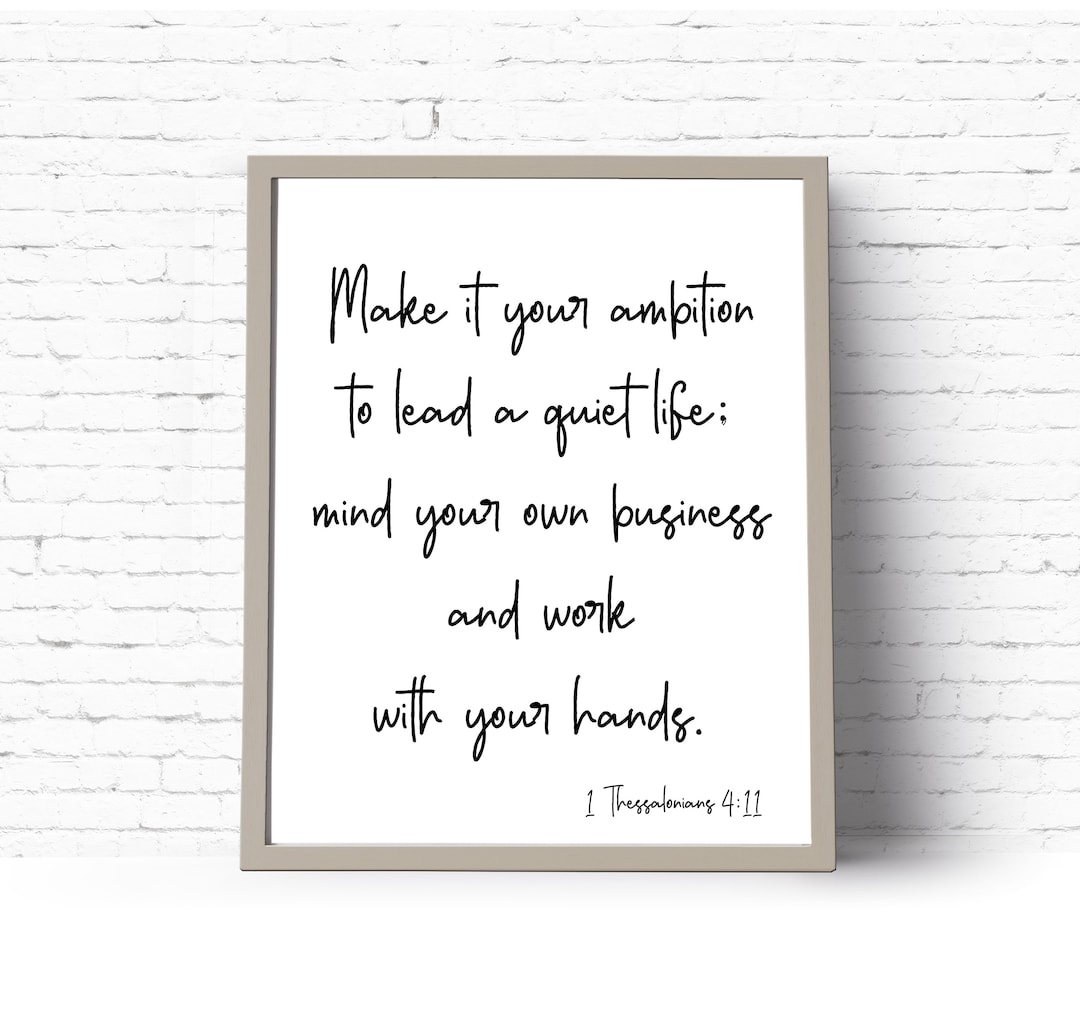 Make it your ambition
to lead a quiet life;
mind your own business
and work
with your hands.
1 Thessalonians 4:11